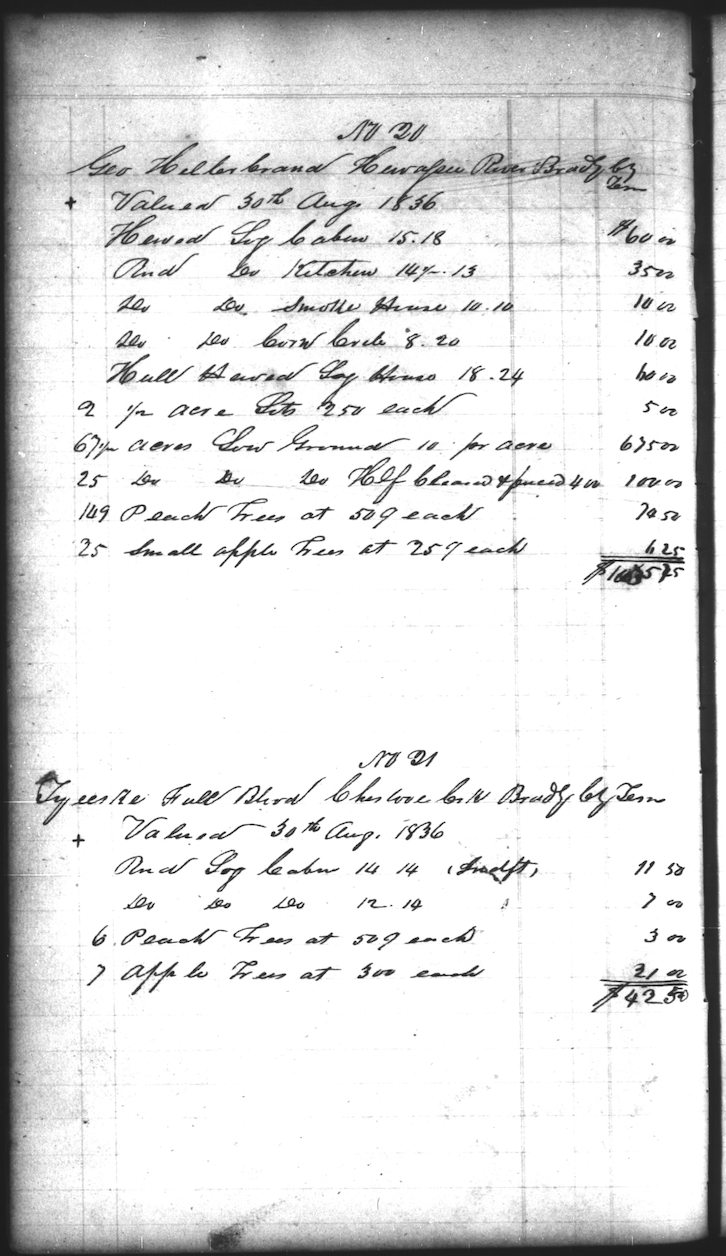 No 20
Geo Helterbrand Hewassee River Brady Cty
Tenn
+ Valued 30th Aug. 1836
Hewed Log Cabin 15.18 $60 00
Rnd Do Kitchen 14½.13 35 00
Do Do Smoke House 10.10 10 00
Do Do Corn Crib 8.20 10 00
Hull Hewed Log House 18.24 60 00
2 ½ acre Lots 250 each 5 00
67½ acres Low Ground 10 pr acre 675 00
25 Do Do Do Hlf Cleared & fenced 4 00 100 00
149 Peach Trees at 50¢ each 74 50
25 Small apple Trees at 25¢ each 6 25
No 21
Tyeeske Full Blood Chestooe Crk Brady Cty Tenn
+ Valued 30th Aug. 1836
Rnd Log Cabin 14 14 11 50
Do Do Do 12.14 7 00
6 Peach Trees at 50¢ each 3 00
7 Apple Trees at 300 each 21 00
$42 50